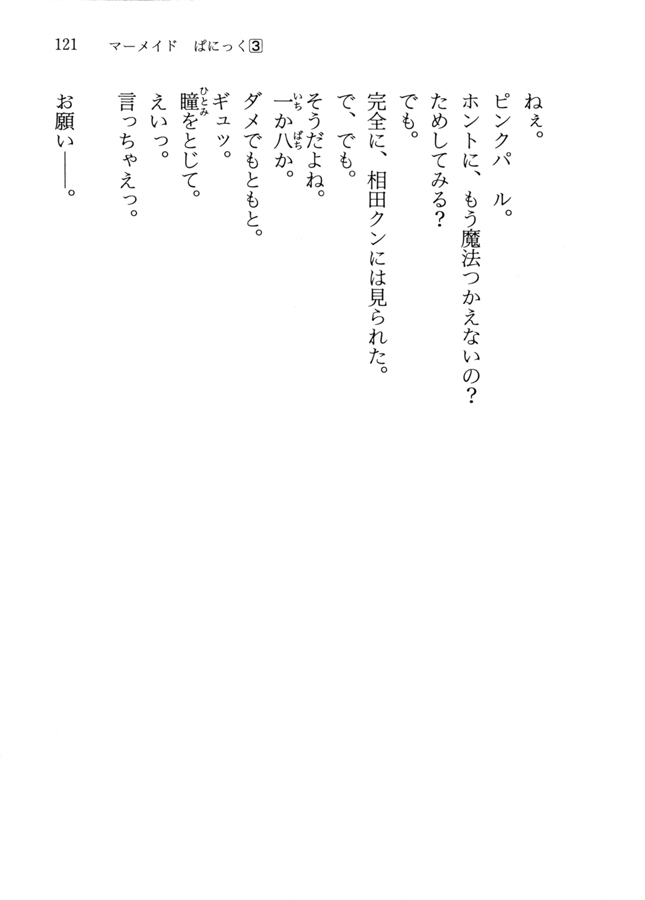 121 マーメイド ぱにっく3
ねぇ。
ピンクパ ル。
ホントに、もう魔法つかえないの？
ためしてみる？
でも。
完全に、相田クンには見られた。
で、でも。
そうだよね。
一か八か。
ダメでもともと。
ギュッ。
瞳をとじて。
えいっ。
言っちゃえっ。
お願い――。